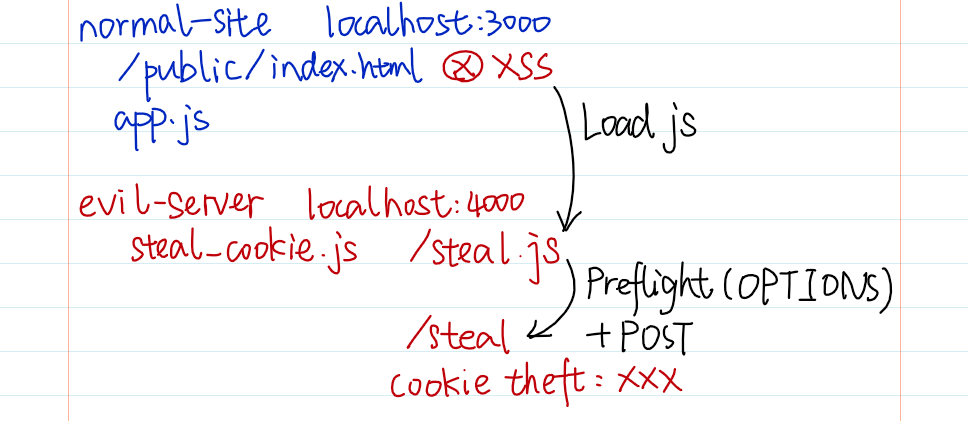 normal-site localhost:3000
/public/index.html ⓧ XSS
app.js
Load js
evil-server localhost:4000
steal_cookie.js /steal.js
Preflight (OPTIONS)
/steal + POST
cookie theft: XXX